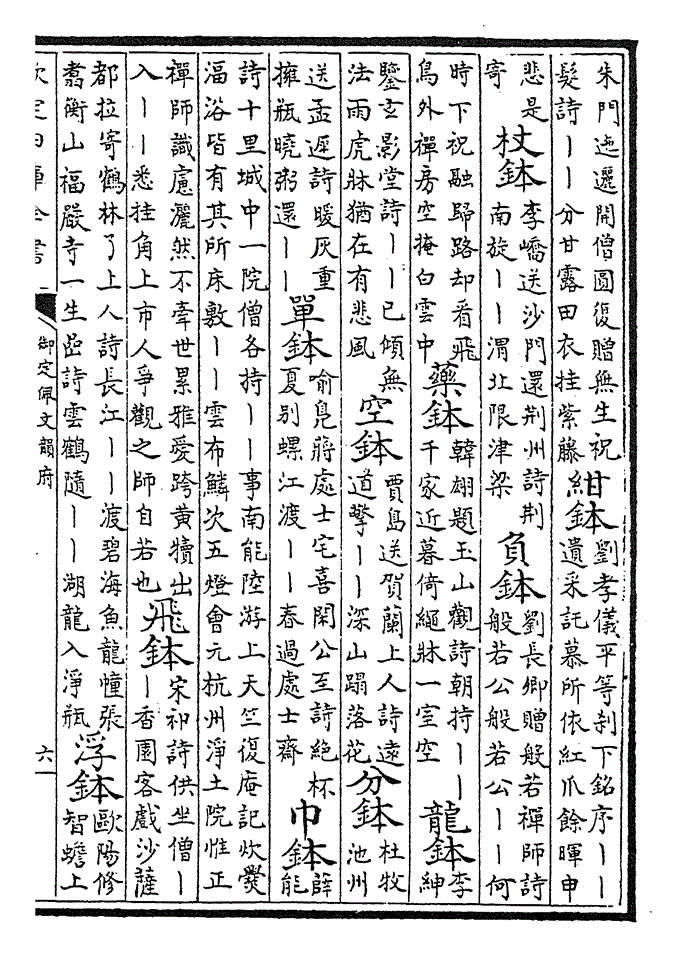 朱門迤邐開僧圓復贈無生祝
髮詩丨丨分甘露田衣挂紫藤
紺鉢
劉孝儀平等刹下銘序丨丨
遺采託慕所依紅爪餘暉申
悲是
寄
杖鉢
李嶠送沙門還荆州詩荆
南旋丨丨渭北限津梁
負鉢
劉長卿贈般若禪師詩
般若公般若公丨丨何
時下祝融歸路却看飛
鳥外禪房空掩白雲中
藥鉢
韓翃題玉山觀詩朝持丨丨
千家近暮倚繩牀一室空
龍鉢
李
紳
鑒玄影堂詩丨丨已傾無
法雨虎牀猶在有悲風
空鉢
賈島送賀蘭上人詩遠
道擎丨丨深山蹋落花
分鉢
杜牧
池州
送孟遲詩暖灰重
擁瓶曉粥還丨丨
單鉢
喻鳧蔣處士宅喜閑公至詩絕杯
夏别螺江渡丨丨春過處士齋
巾鉢
薛
能
詩十里城中一院僧各持丨丨事南能陸游上天竺復庵記炊㸑
湢浴皆有其所床敷丨丨雲布鱗次五燈會元杭州淨土院惟正
禪師識慮灑然不牽世累雅愛跨黃犢出
入丨丨悉挂角上市人爭觀之師自若也
飛鉢
宋祁詩供坐僧丨
丨香園客戲沙薩
都拉寄鶴林了上人詩長江丨丨渡碧海魚龍幢張
翥衡山福嚴寺一生岊詩雲鶴隨丨丨湖龍入淨瓶
浮鉢
歐陽修
智蟾上
欽定四庫全書
御定佩文韻府
六